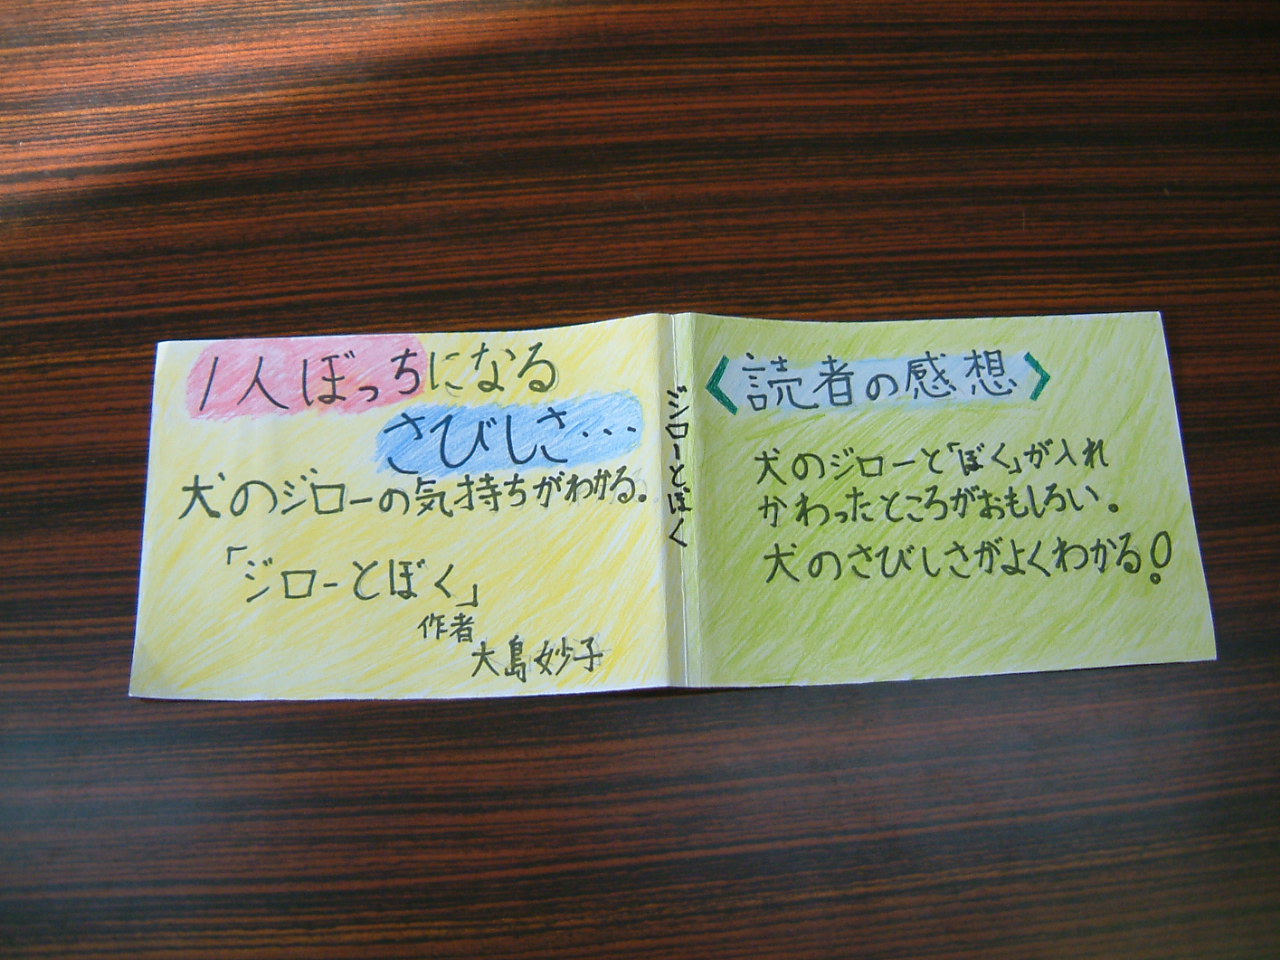 1人ぼっちになる
さびしさ…
犬のジローの気持ちがわかる。
「ジローとぼく」
作者
大島妙子
ジローとぼく
〈読者の感想〉
犬のジローと「ぼく」が入れ
かわったところがおもしろい。
犬のさびしさがよくわかる!